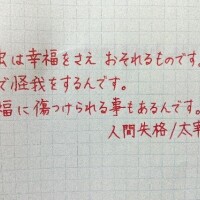 虫は幸福をさえ おそれるものです。
で怪我をするんです。
福に傷つけられる事もあるんです。
人間失格/太宰